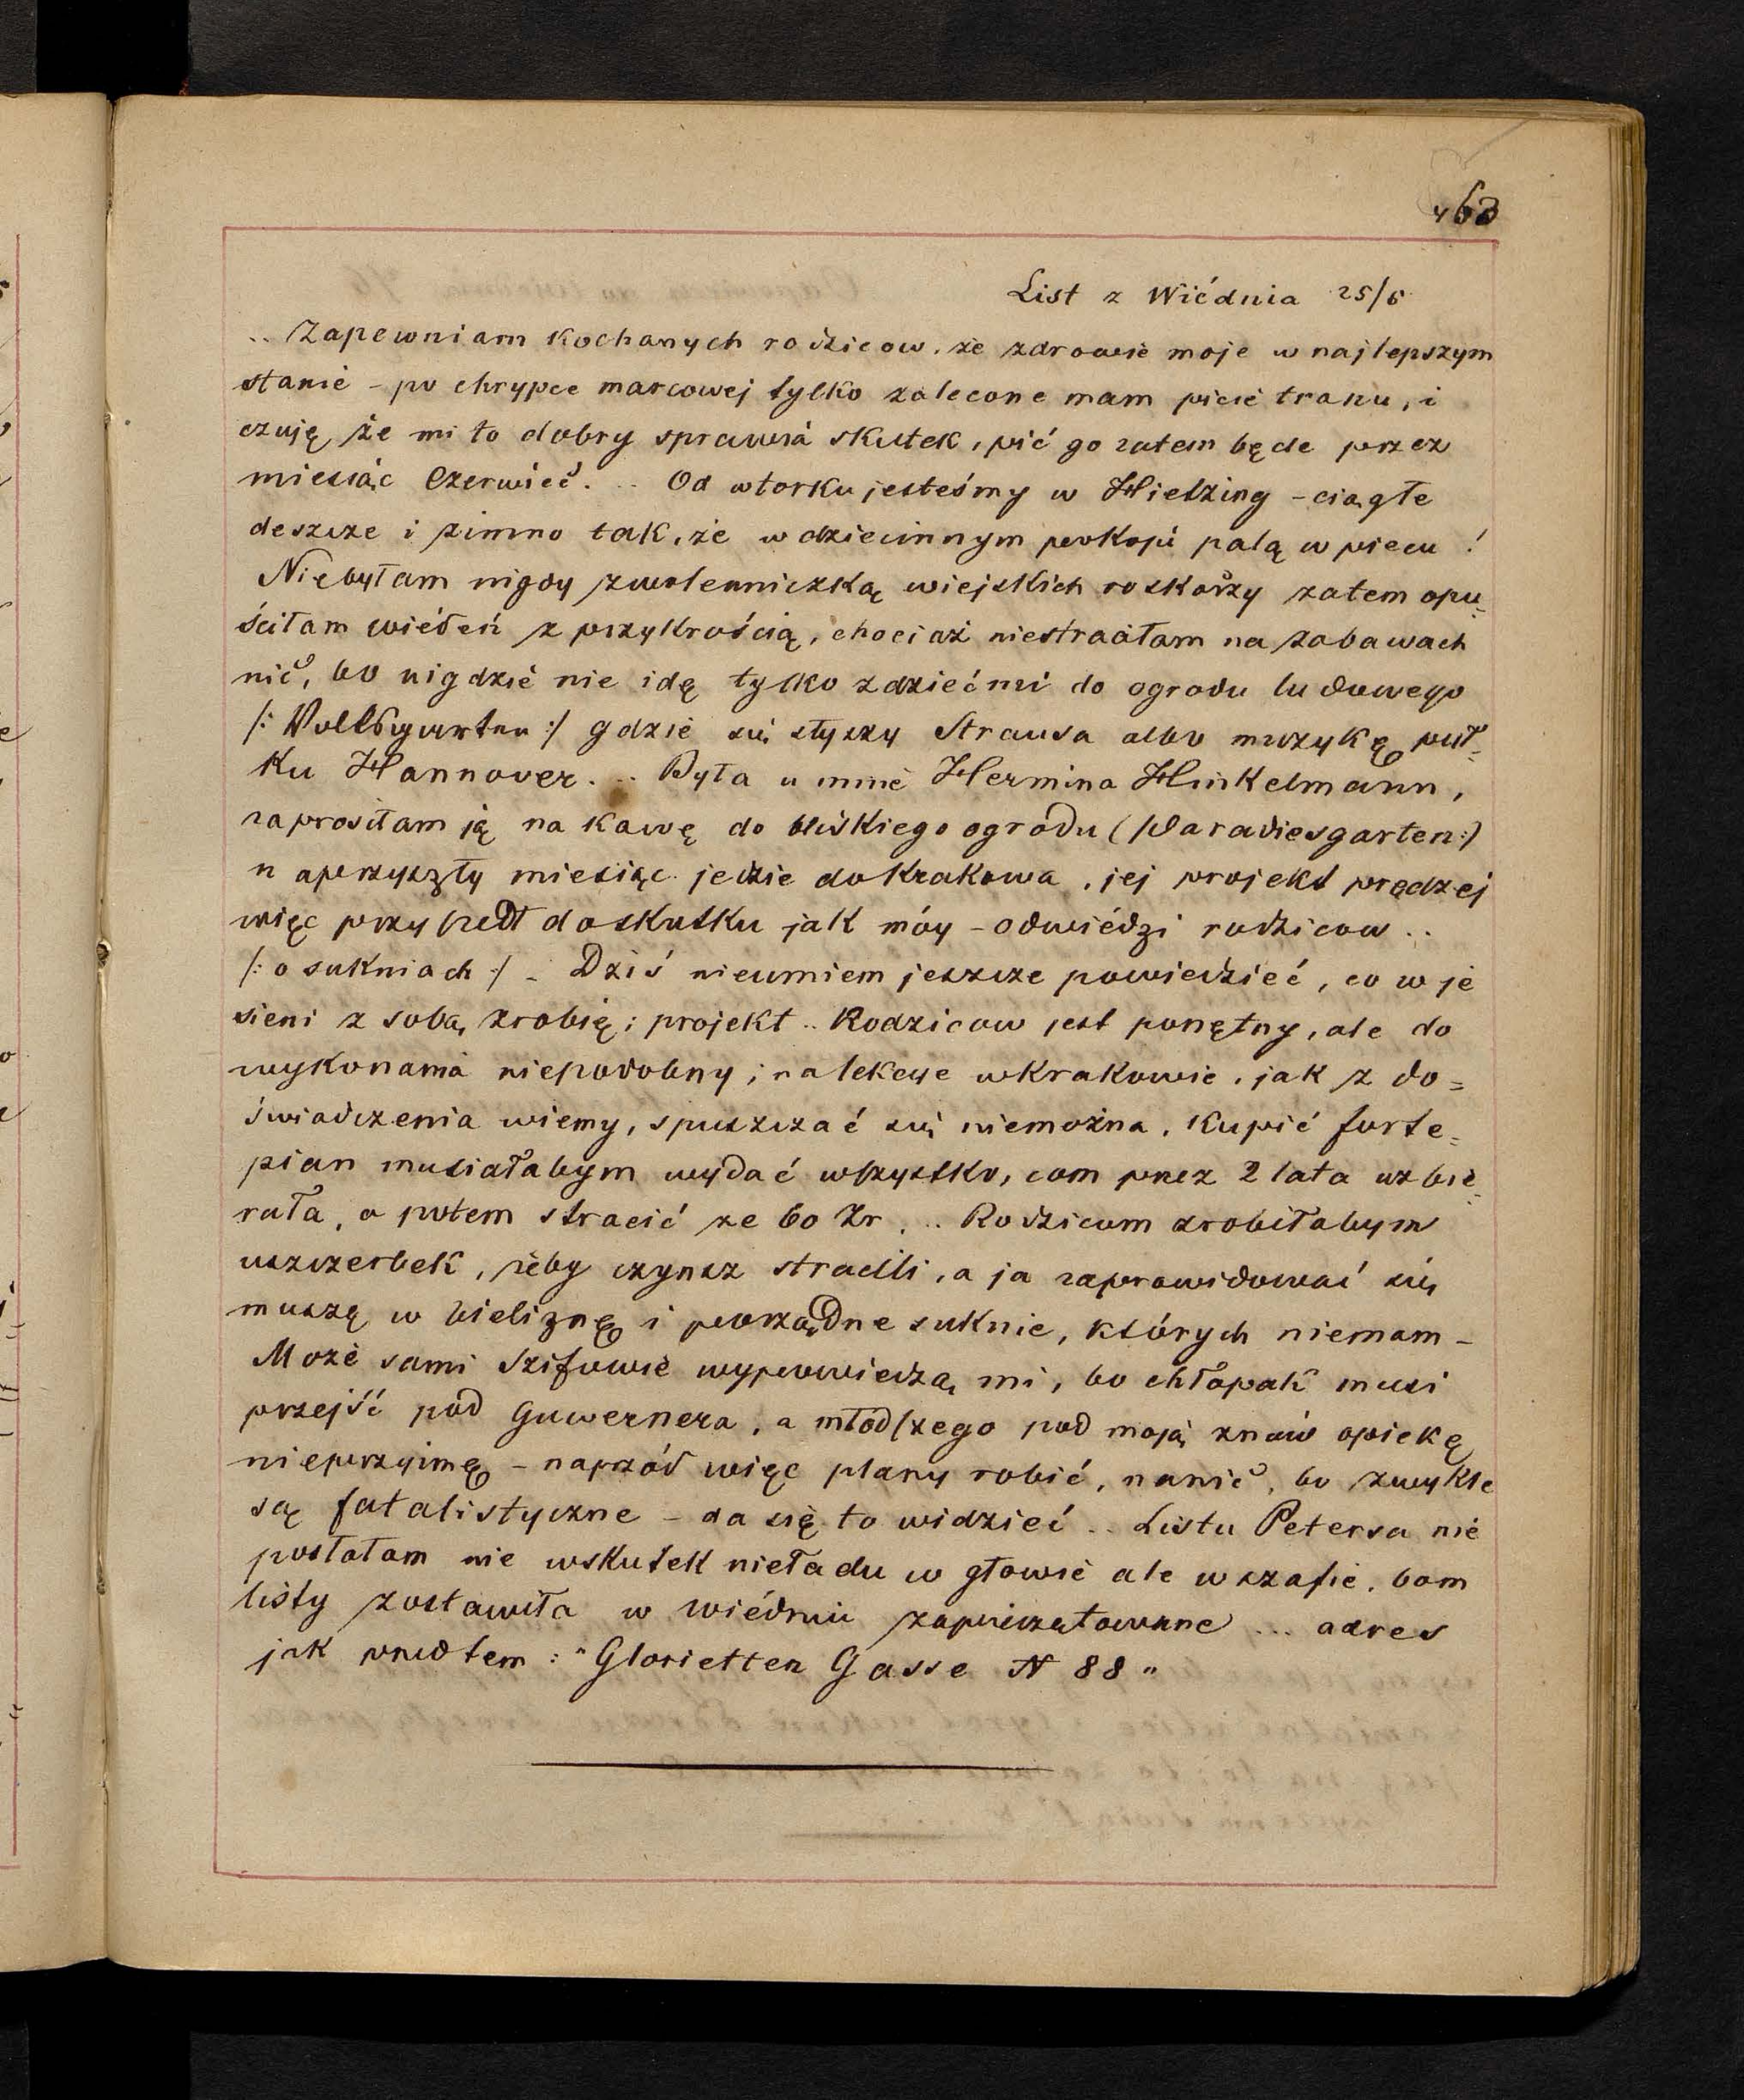 463
List z Wiédnia 25/5
.. Zapewniam kochanych rodziców, że zdrowie moje w najlepszym
stanie - po chrypce marcowej tylko zalecone mam picie tranu, i
czuję że mi to dobry sprawia skutek, pić go zatem będe przez
miesiąc Czerwiec. .. Od wtorku jesteśmy w Hietzing - ciągłe
deszcze i zimno tak, że w dziecinnym pokoju palą w piecu !
Niebyłam nigdy zwolenniczką wiejskich roskoszy zatem opu=
ściłam wiédeń z przykrością, chociaż niestraciłam na zabawach
nic, bo nigdzie nie idę tylko z dziećmi do ogrodu ludowego
/: Volksgarten :/ gdzie się słyszy Strausa albo muzykę puł=
ku Hannover. .. Była u mnie Hermina Hinkelmann,
zaprosiłam ją na kawę do bliskiego ogrodu (Paradiesgarten:)
na przyszły miesiąc jedzie do Krakowa, jej projekt prędzej
więc przyszedł do skutku jak móy - odwiédzi rodziców ..
/: o sukniach :/ - Dziś nieumiem jeszcze powiedzieć, co w je
sieni z sobą zrobię; projekt .. Rodziców jest ponętny, ale do
wykonania niepodobny; na lekcye w Krakowie, jak z do=
świadczenia wiemy, spuszczać się niemożna. Kupić forte=
pian musiałabym wydać wszystko, com przez 2 lata uzbie=
rała, a potem stracić ze 60 Zr. .. Rodzicom zrobiłabym
uszczerbek, żeby czynsz stracili, a ja zaprowidować się
muszę w bieliznę i porządne suknie, których niemam -
Może sami Szifowie wypowiedzą mi, bo chłopak musi
przejść pod guwernera, a młodszego pod moją znów opiekę
nieprzyimę - naprzód więc plany robić, nanic, bo zwykle
są fatalistyczne - da się to widzieć .. Listu Petersa nie
posłałam nie wskutek nieładu w głowie ale w szafie, bom
listy zostawiła w wiédniu zapieczętowane ... adres
jak przedtem : "Glorietten Gasse N 88"